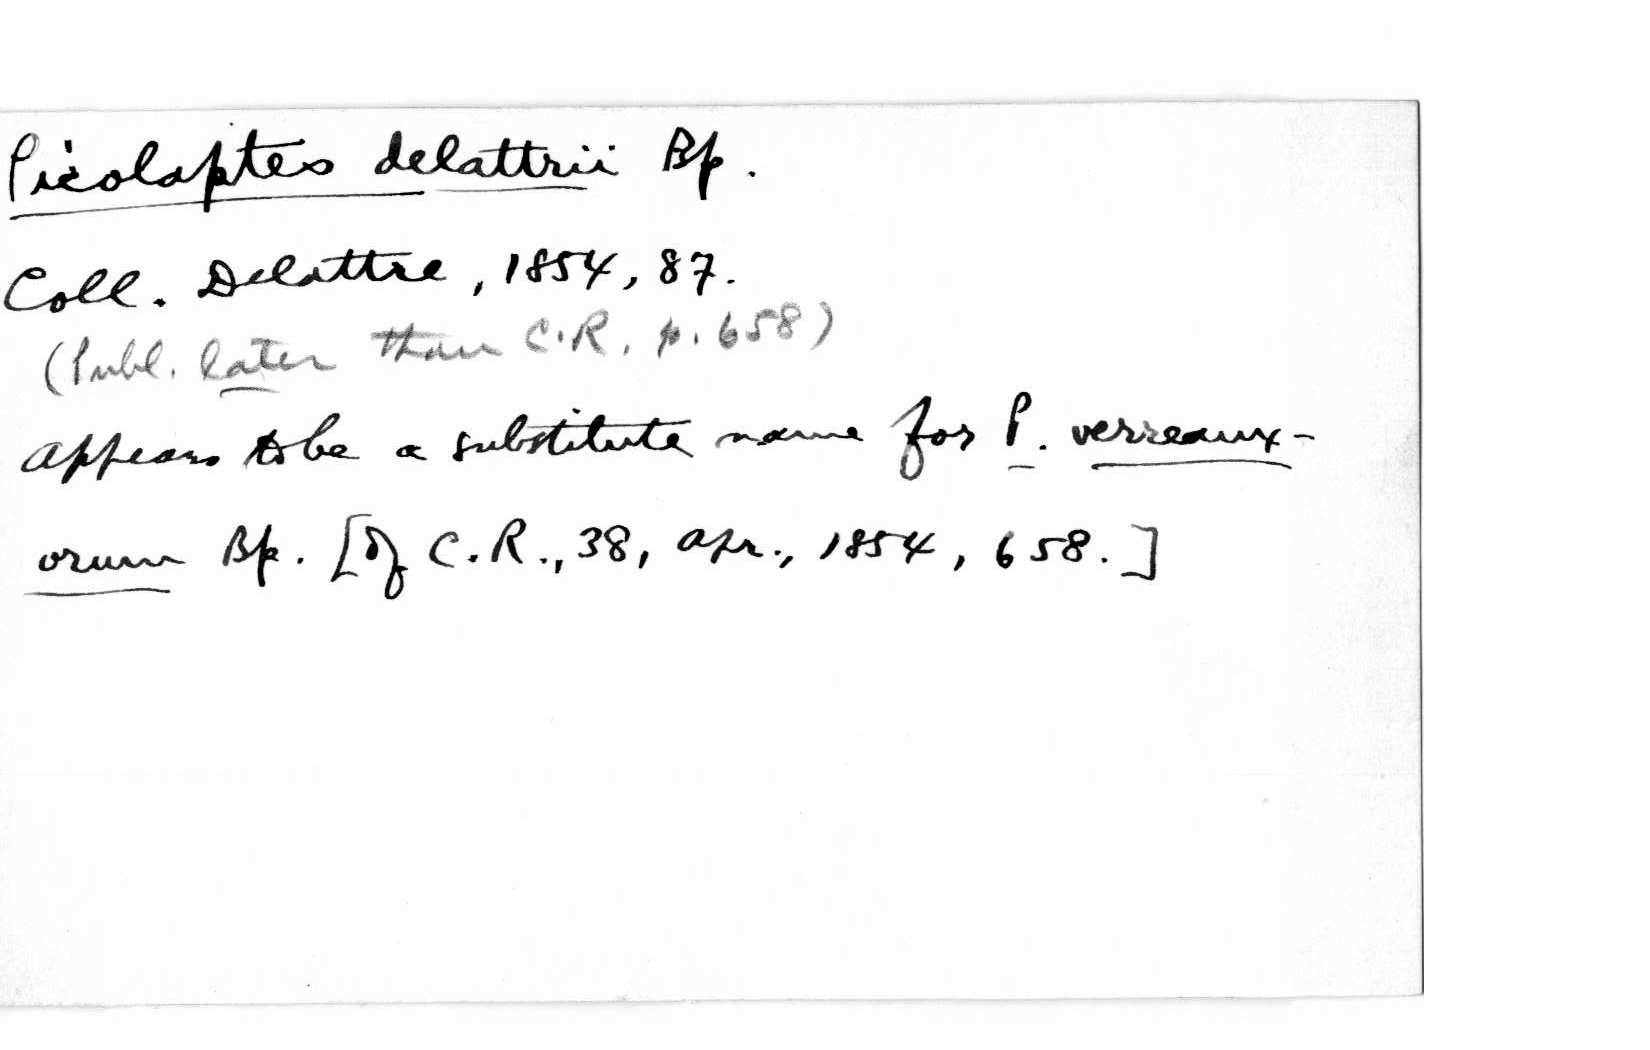 Picolaptes delattrii Bp.
Coll. Delattre, 1854, 87.
(Publ. later than C.R. p. 658)
appears to be a substitute name for P. verreaux-
orum Bp. [Of C.R., 38, Apr., 1854, 658.]